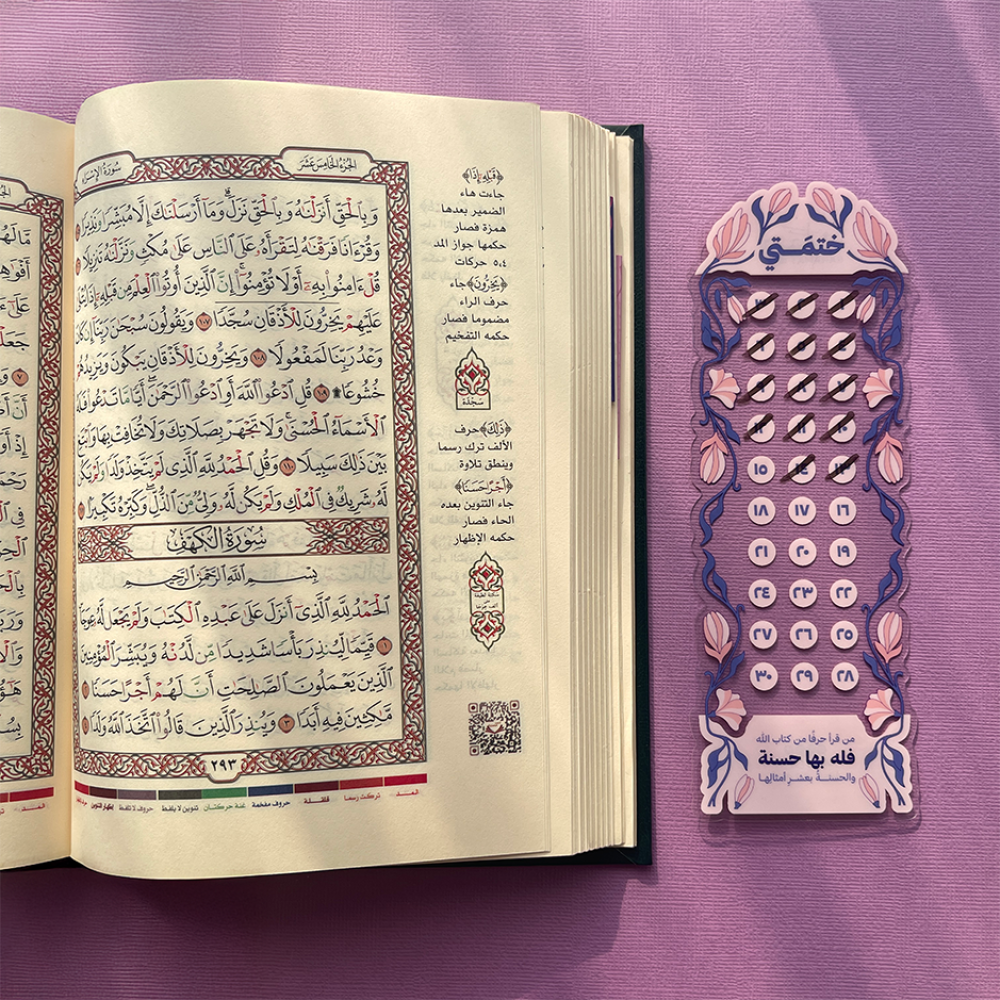 سورة الإسراء
الجزء الخامس عشر
وَبِالْحَقِّ أَنزَلْنَٰهُ وَبِالْحَقِّ نَزَلَ وَمَا أَرْسَلْنَٰكَ إِلَّا مُبَشِّرًا وَنَذِيرًا
وَقُرْءَانًا فَرَقْنَٰهُ لِتَقْرَأَهُ عَلَى النَّاسِ عَلَىٰ مُكْثٍ وَنَزَّلْنَٰهُ تَنزِيلًا
قُلْ ءَامِنُوا بِهِ أَوْ لَا تُؤْمِنُوا إِنَّ الَّذِينَ أُوتُوا الْعِلْمَ مِن قَبْلِهِ إِذَا يُتْلَىٰ
عَلَيْهِمْ يَخِرُّونَ لِلْأَذْقَانِ سُجَّدًا ١٠٧ وَيَقُولُونَ سُبْحَٰنَ رَبِّنَا إِن كَانَ
وَعْدُ رَبِّنَا لَمَفْعُولًا ١٠٨ وَيَخِرُّونَ لِلْأَذْقَانِ يَبْكُونَ وَيَزِيدُهُمْ
خُشُوعًا ١٠٩ قُلِ ادْعُوا اللَّهَ أَوِ ادْعُوا الرَّحْمَٰنَ أَيًّا مَّا تَدْعُوا فَلَهُ
الْأَسْمَاءُ الْحُسْنَىٰ وَلَا تَجْهَرْ بِصَلَاتِكَ وَلَا تُخَافِتْ بِهَا وَابْتَغِ
بَيْنَ ذَٰلِكَ سَبِيلًا ١١٠ وَقُلِ الْحَمْدُ لِلَّهِ الَّذِي لَمْ يَتَّخِذْ وَلَدًا وَلَمْ يَكُن
لَّهُ شَرِيكٌ فِي الْمُلْكِ وَلَمْ يَكُن لَّهُ وَلِيٌّ مِّنَ الذُّلِّ وَكَبِّرْهُ تَكْبِيرًا
سُورَةُ الْكَهْفِ
بِسْمِ اللَّهِ الرَّحْمَٰنِ الرَّحِيمِ
الْحَمْدُ لِلَّهِ الَّذِي أَنزَلَ عَلَىٰ عَبْدِهِ الْكِتَٰبَ وَلَمْ يَجْعَل لَّهُ عِوَجَا
١ قَيِّمًا لِّيُنذِرَ بَأْسًا شَدِيدًا مِّن لَّدُنْهُ وَيُبَشِّرَ الْمُؤْمِنِينَ
الَّذِينَ يَعْمَلُونَ الصَّٰلِحَٰتِ أَنَّ لَهُمْ أَجْرًا حَسَنًا
مَّٰكِثِينَ فِيهِ أَبَدًا ٣ وَيُنذِرَ الَّذِينَ قَالُوا اتَّخَذَ اللَّهُ وَلَدًا
٢٩٣
﴿قَبْلِهِ إِذَا﴾
جاءت هاء
الضمير بعدها
همزة فصار
حكمها جواز المد
٥،٤ حركات
﴿يَخِرُّونَ﴾ جاء
حرف الراء
مضموما فصار
حكمه التفخيم
سجدة
﴿ذَٰلِكَ﴾ حرف
الألف ترك رسما
وينطق تلاوة
﴿أَجْرًا حَسَنًا﴾
جاء التنوين بعده
الحاء فصار
حكمه الإظهار
تركت رسما
قلقلة
حروف مفخمة
غنة حركتان
تنوين لا يلفظ
حروف لا تلفظ
إظهار التنوين
ختمَتي
١٥ ١٤ ١٣
١٨ ١٧ ١٦
٢١ ٢٠ ١٩
٢٤ ٢٣ ٢٢
٢٧ ٢٦ ٢٥
٣٠ ٢٩ ٢٨
من قرأ حرفًا من كتاب الله
فله بها حسنة
والحسنةُ بعشرِ أمثالِها